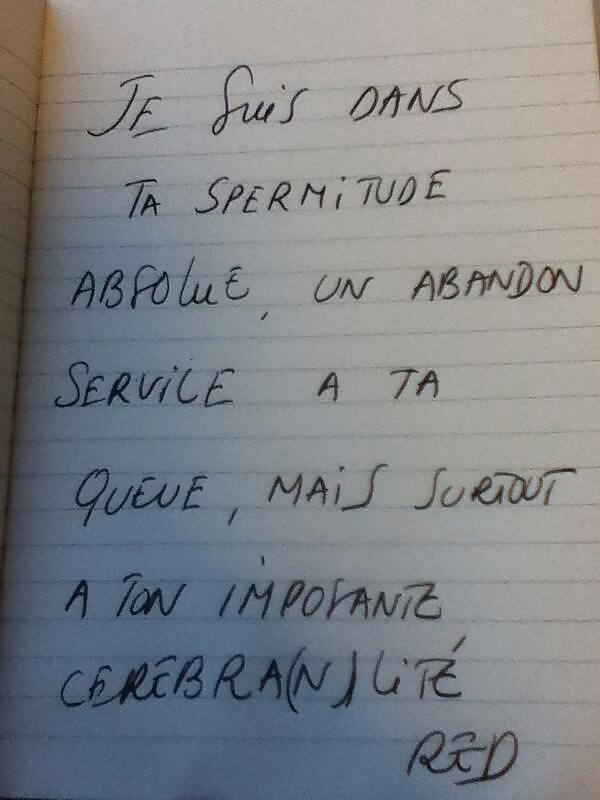 JE suis DANS
TA SPERMITUDE
ABSOLUE, UN ABANDON
SERVICE A TA
QUEUE, MAIS SURTOUT
A TON IMPOSANTE
CEREBRA(N)LITÉ
RED